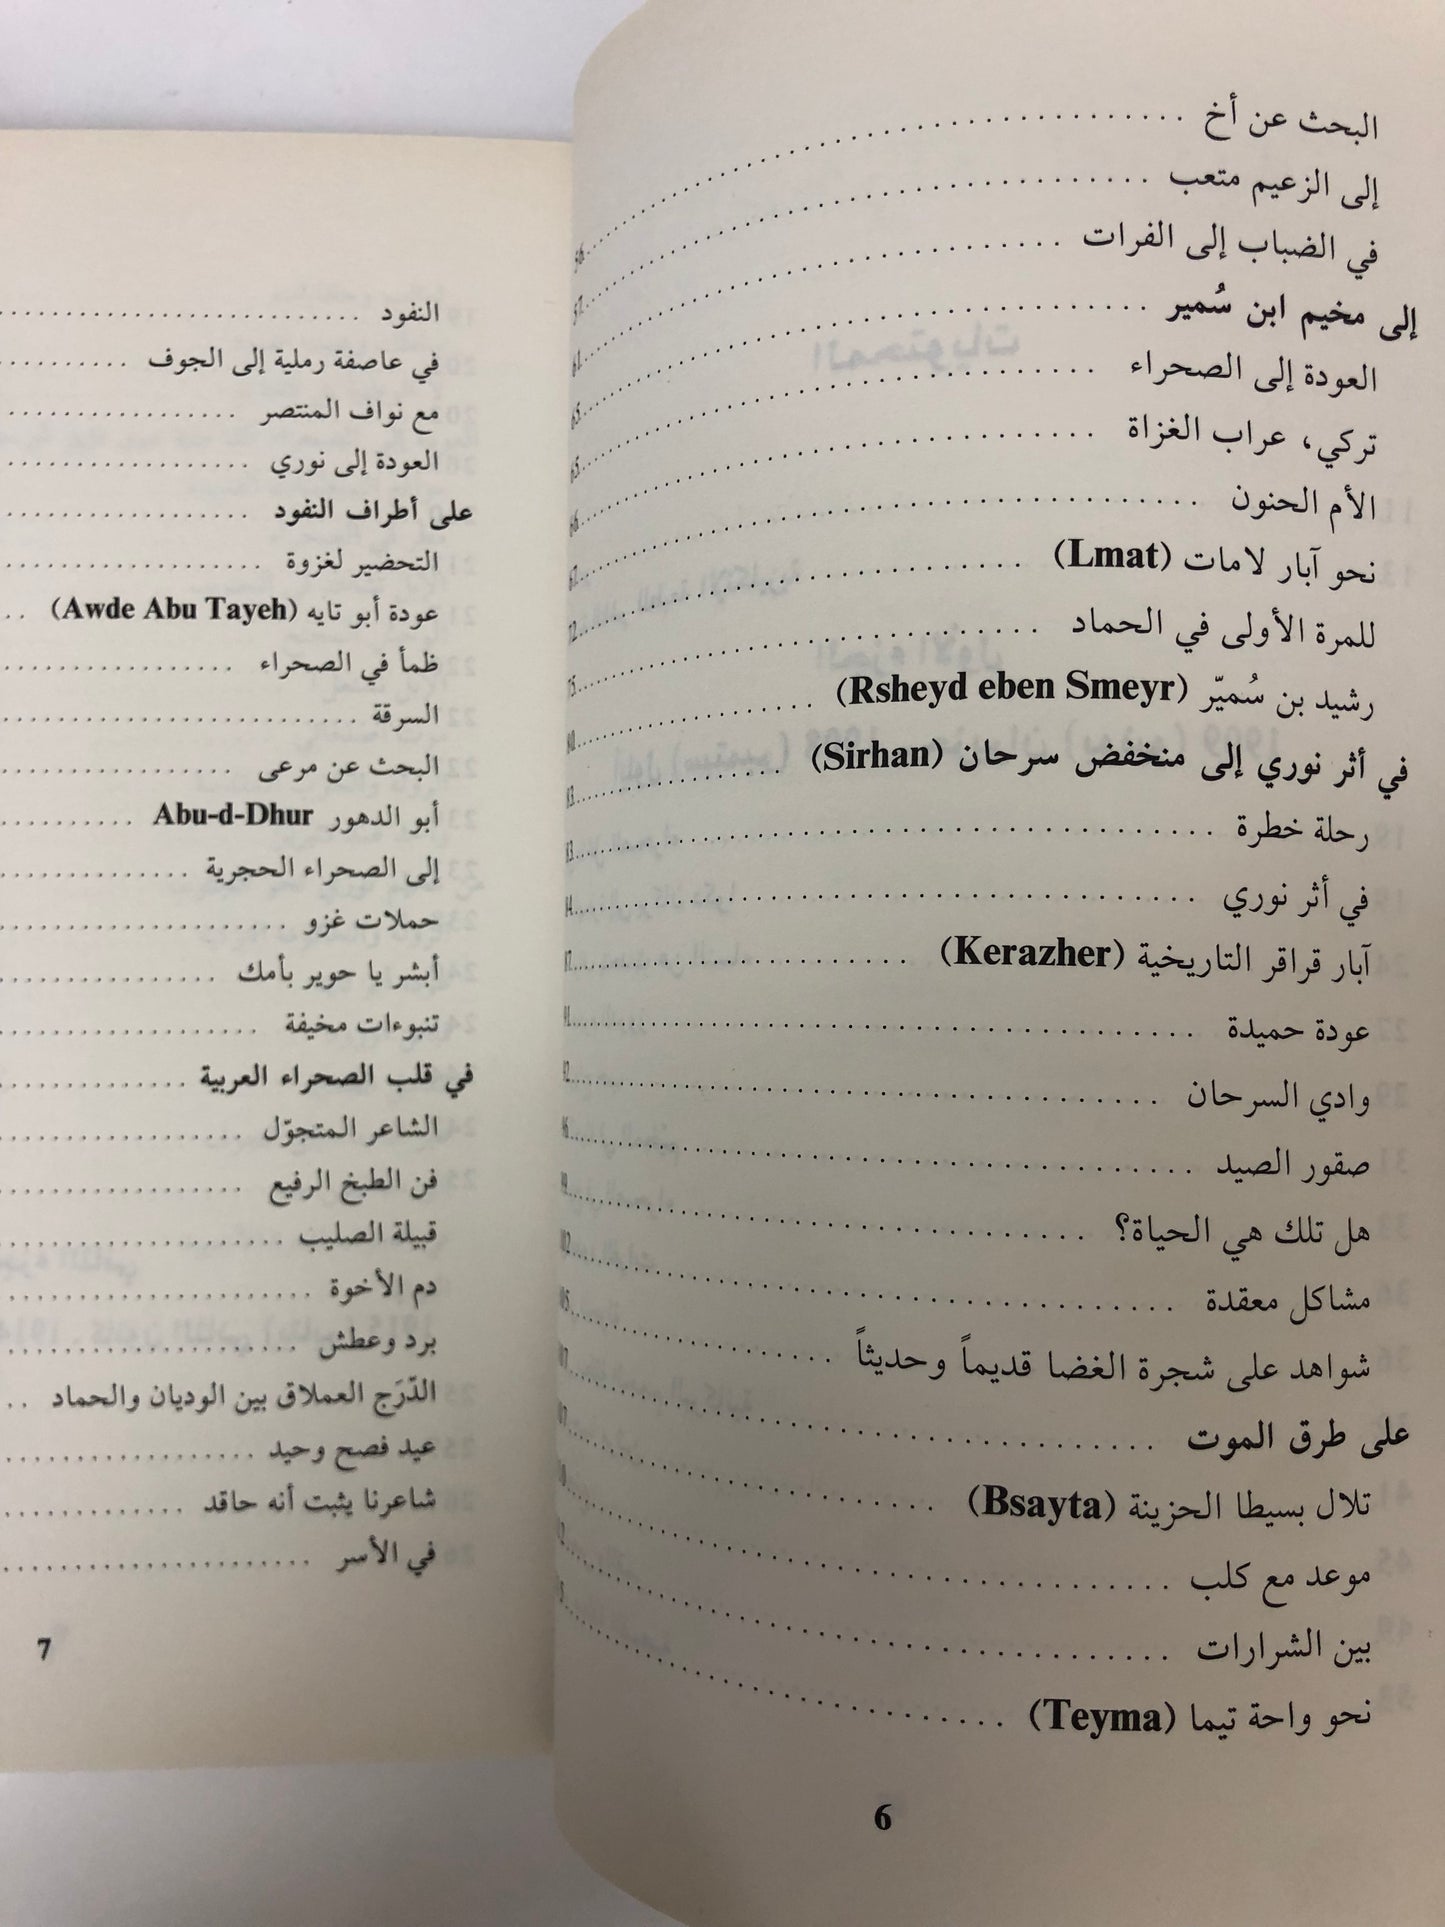 البحث عن أخ
إلى الزعيم متعب
في الضباب إلى الفرات
إلى مخيم ابن سُمير
العودة إلى الصحراء
تركي، عراب الغزاة
الأم الحنون
نحو آبار لامات (Lmat)
للمرة الأولى في الحماد
رشيد بن سُميّر (Rsheyd eben Smeyr)
في أثر نوري إلى منخفض سرحان (Sirhan)
رحلة خطرة
في أثر نوري
آبار قراقر التاريخية (Kerazher)
عودة حميدة
وادي السرحان
صقور الصيد
هل تلك هي الحياة؟
مشاكل معقدة
شواهد على شجرة الغضا قديماً وحديثاً
على طرق الموت
تلال بسيطا الحزينة (Bsayta)
موعد مع كلب
بين الشرارات
نحو واحة تيما (Teyma)
6
النفود
في عاصفة رملية إلى الجوف
مع نواف المنتصر
العودة إلى نوري
على أطراف النفود
التحضير لغزوة
عودة أبو تايه (Awde Abu Tayeh)
ظمأ في الصحراء
السرقة
البحث عن مرعى
أبو الدهور Abu-d-Dhur
إلى الصحراء الحجرية
حملات غزو
أبشر يا حوير بأمك
تنبوءات مخيفة
في قلب الصحراء العربية
الشاعر المتجوّل
فن الطبخ الرفيع
قبيلة الصليب
دم الأخوة
برد وعطش
الدّرَج العملاق بين الوديان والحماد
عيد فصح وحيد
شاعرنا يثبت أنه حاقد
في الأسر
7